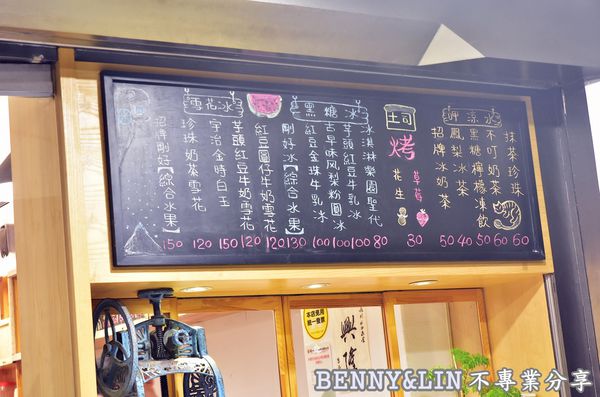 呷涼水
抹茶珍珠
不叮奶茶
黑糖檸檬凍飲
鳳梨冰茶
招牌冰奶茶
土司
烤
草莓
花生
黑糖冰
冰淇淋樂園聖代
芋頭紅豆牛乳冰
古早味风梨粉圓冰
紅豆金珠牛乳冰
剛好冰【綜合水果】
雪花冰
紅豆圓仔牛奶雪花
芋頭紅豆牛奶雪花
宇治金時白玉
珍珠奶茶雪花
招牌剛好【綜合水果】
150 120 150 120 120 130 100 100 100 80 30 50 40 50 60 60
本店免用
統一發票
興隆
BENNY&LIN 不專業分享